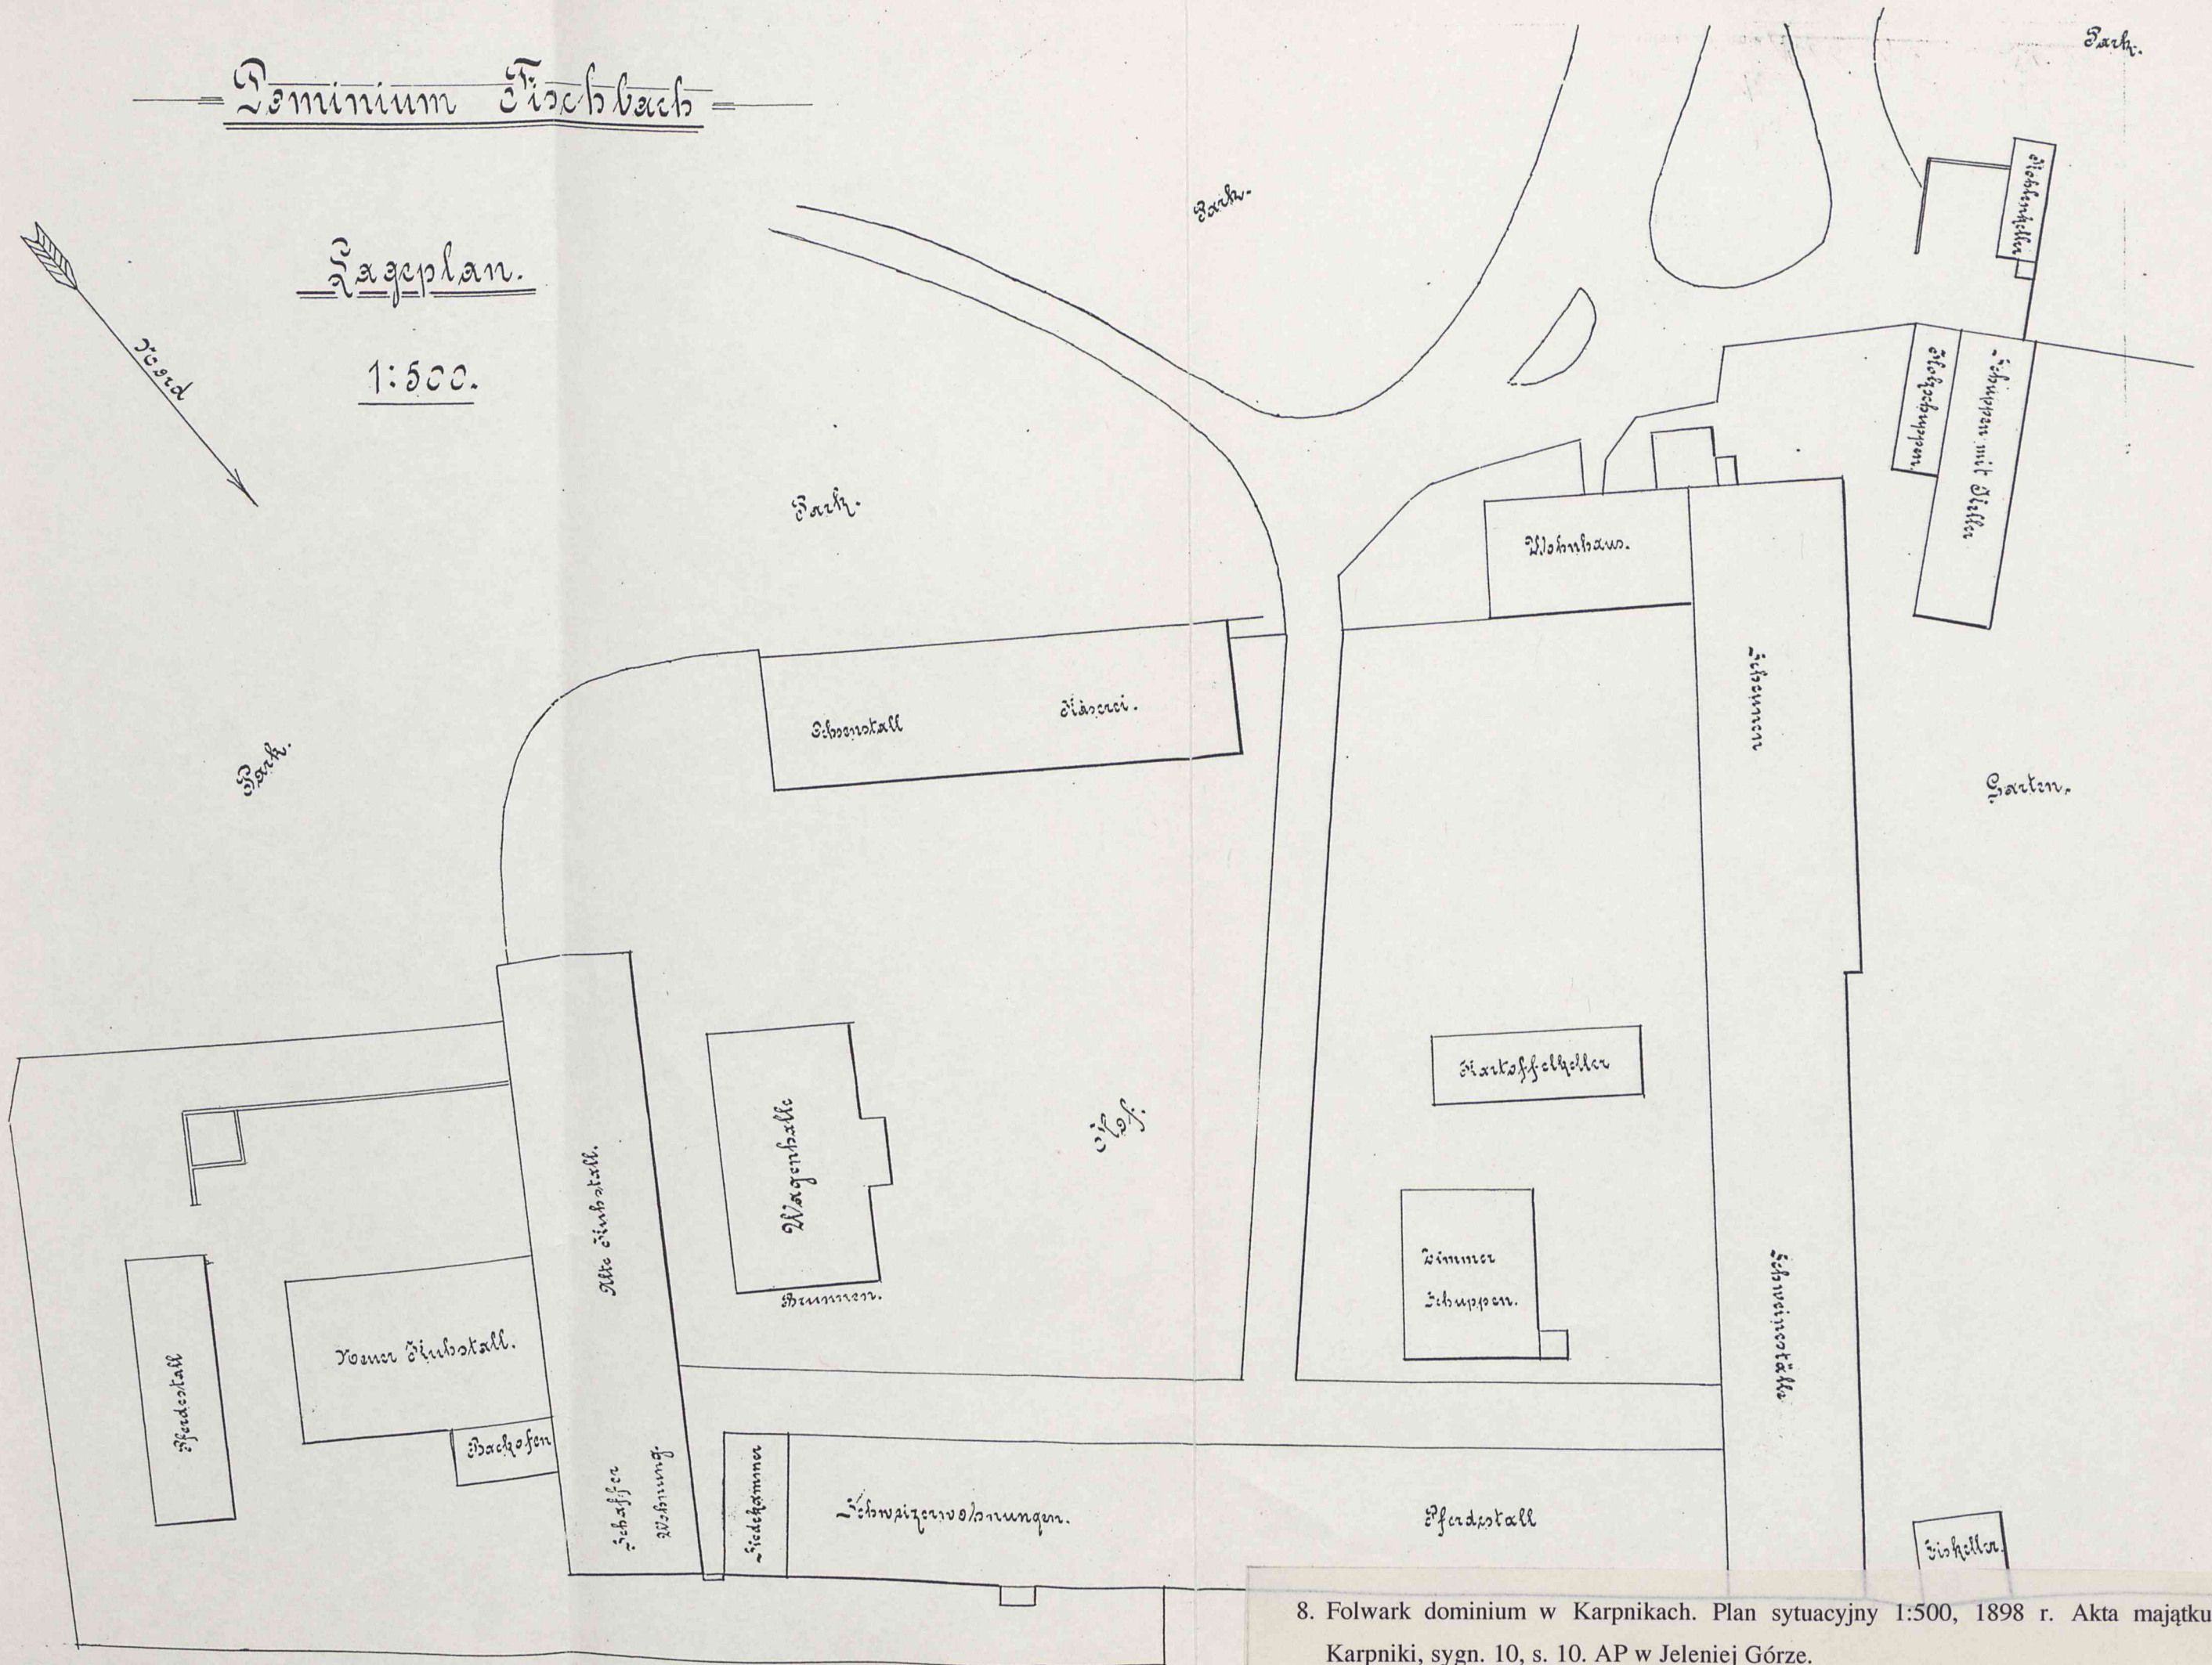 Dominium Fischbach
Lageplan.
1:500.
Nord
Park.
Park.
Park.
Park.
Kohlenkeller
Holzschuppen
Schuppen mit Keller
Wohnhaus.
Scheunen
Ochsenstall
Käserei.
Garten.
Kartoffelkeller
Hof.
Wagenhalle
Alte Kuhstall.
Zimmer
Schuppen.
Brunnen.
Schweineställe
Neuer Kuhstall.
Pferdestall
Backofen
Schaffer
Wohnung.
Siedekammer
Schweizerwohnungen.
Pferdestall
Eiskeller.
8. Folwark dominium w Karpnikach. Plan sytuacyjny 1:500, 1898 r. Akta majątku
Karpniki, sygn. 10, s. 10. AP w Jeleniej Górze.